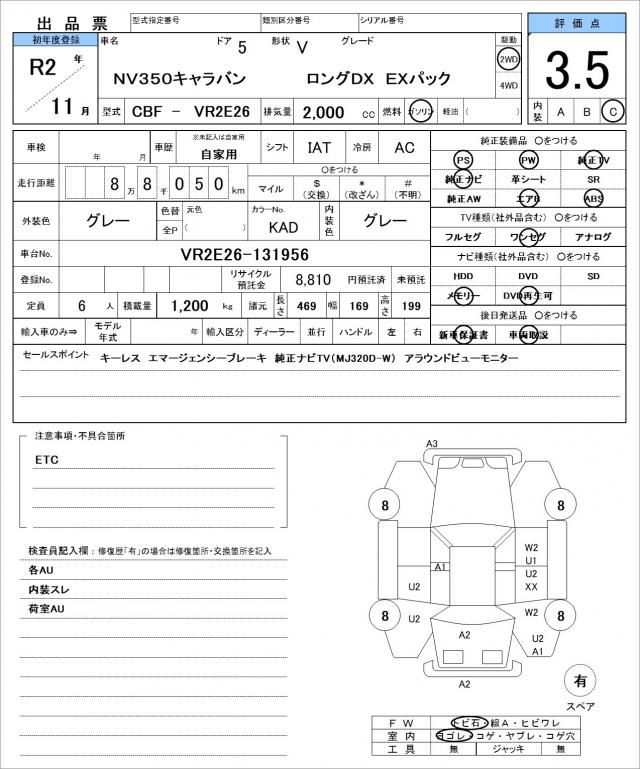 出品票 型式指定番号 類別区分番号 シリアル番号
評価点
初年度登録 車名 ドア 5 形状 V グレード 駆動
R2 年 NV350キャラバン ロングDX EXパック 2WD
4WD
3.5
11 月 型式 CBF - VR2E26 排気量 2,000 cc 燃料 ガソリン 軽油 ( )
内装 A B C
車検 年 月 車歴 ※未記入は自家用 自家用 シフト IAT 冷房 AC
走行距離 8 万 8 千 0 5 0 km ○をつける
マイル $ (交換) * (改ざん) # (不明)
外装色 グレー 色替 元色 カラーNo. KAD 内装色 グレー
全P ( )
車台No. VR2E26-131956
登録No. リサイクル預託金 8,810 円預託済 未預託
定員 6 人 積載量 1,200 kg 諸元 長さ 469 幅 169 高さ 199
輸入車のみ⇒ モデル年式 年 輸入区分 ディーラー 並行 ハンドル 左 右
純正装備品 ○をつける
PS PW 純正TV
純正ナビ 革シート SR
純正AW エアB ABS
TV種類(社外品含む) ○をつける
フルセグ ワンセグ アナログ
ナビ種類(社外品含む) ○をつける
HDD DVD SD
メモリー DVD再生可
後日発送品 ○をつける
新車保証書 車両取説
セールスポイント キーレス エマージェンシーブレーキ 純正ナビTV(MJ320D-W) アラウンドビューモニター
注意事項・不具合箇所
ETC
検査員記入欄：修復歴「有」の場合は修復箇所・交換箇所を記入
各AU
内装スレ
荷室AU
A3
8 8
W2
U1
A1 U2
U2 XX
8 U2 W2 8
A2 U2
A1
A2
有
スペア
FW トビ石・線A・ヒビワレ
室内 ヨゴレ・コゲ・ヤブレ・コゲ穴
工具 無 ジャッキ 無